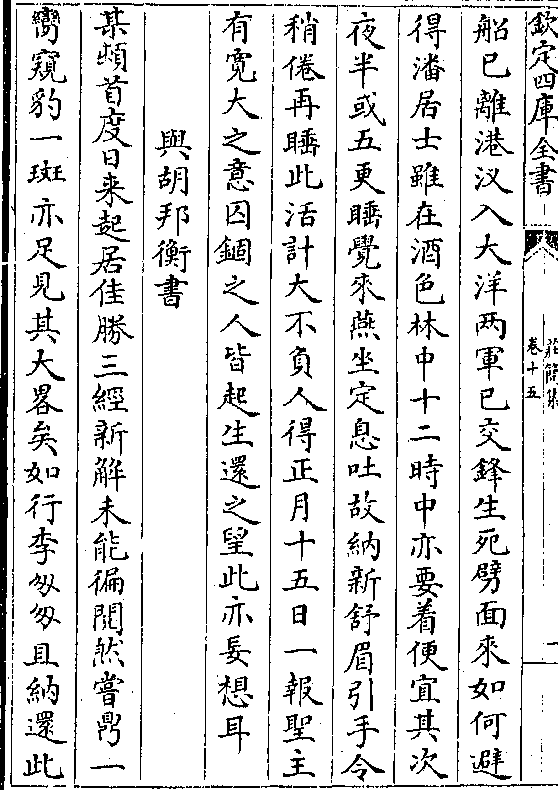 欽定四庫全書
莊簡集
卷十五
船已離港汊入大洋两軍已交鋒生死劈面來如何避
得潘居士雖在酒色林中十二時中亦要着便宜其次
夜半或五更睡覺來燕坐定息吐故納新舒眉引手令
稍倦再睡此活計大不負人得正月十五日一報聖主
有寛大之意囚錮之人皆起生還之望此亦妄想耳
與胡邦衡書
某頓首度日来起居佳勝三經新解未能徧閲然嘗鼎一
臠窺豹一斑亦足見其大畧矣如行李匆匆且納還此